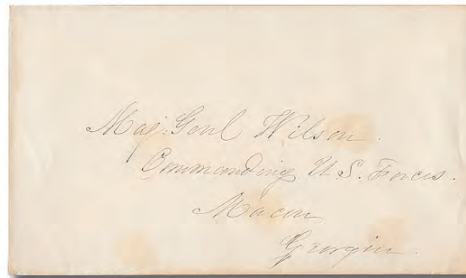 Maj. Genl Wilson.
Commanding U.S. Forces.
Macon,
Georgia.